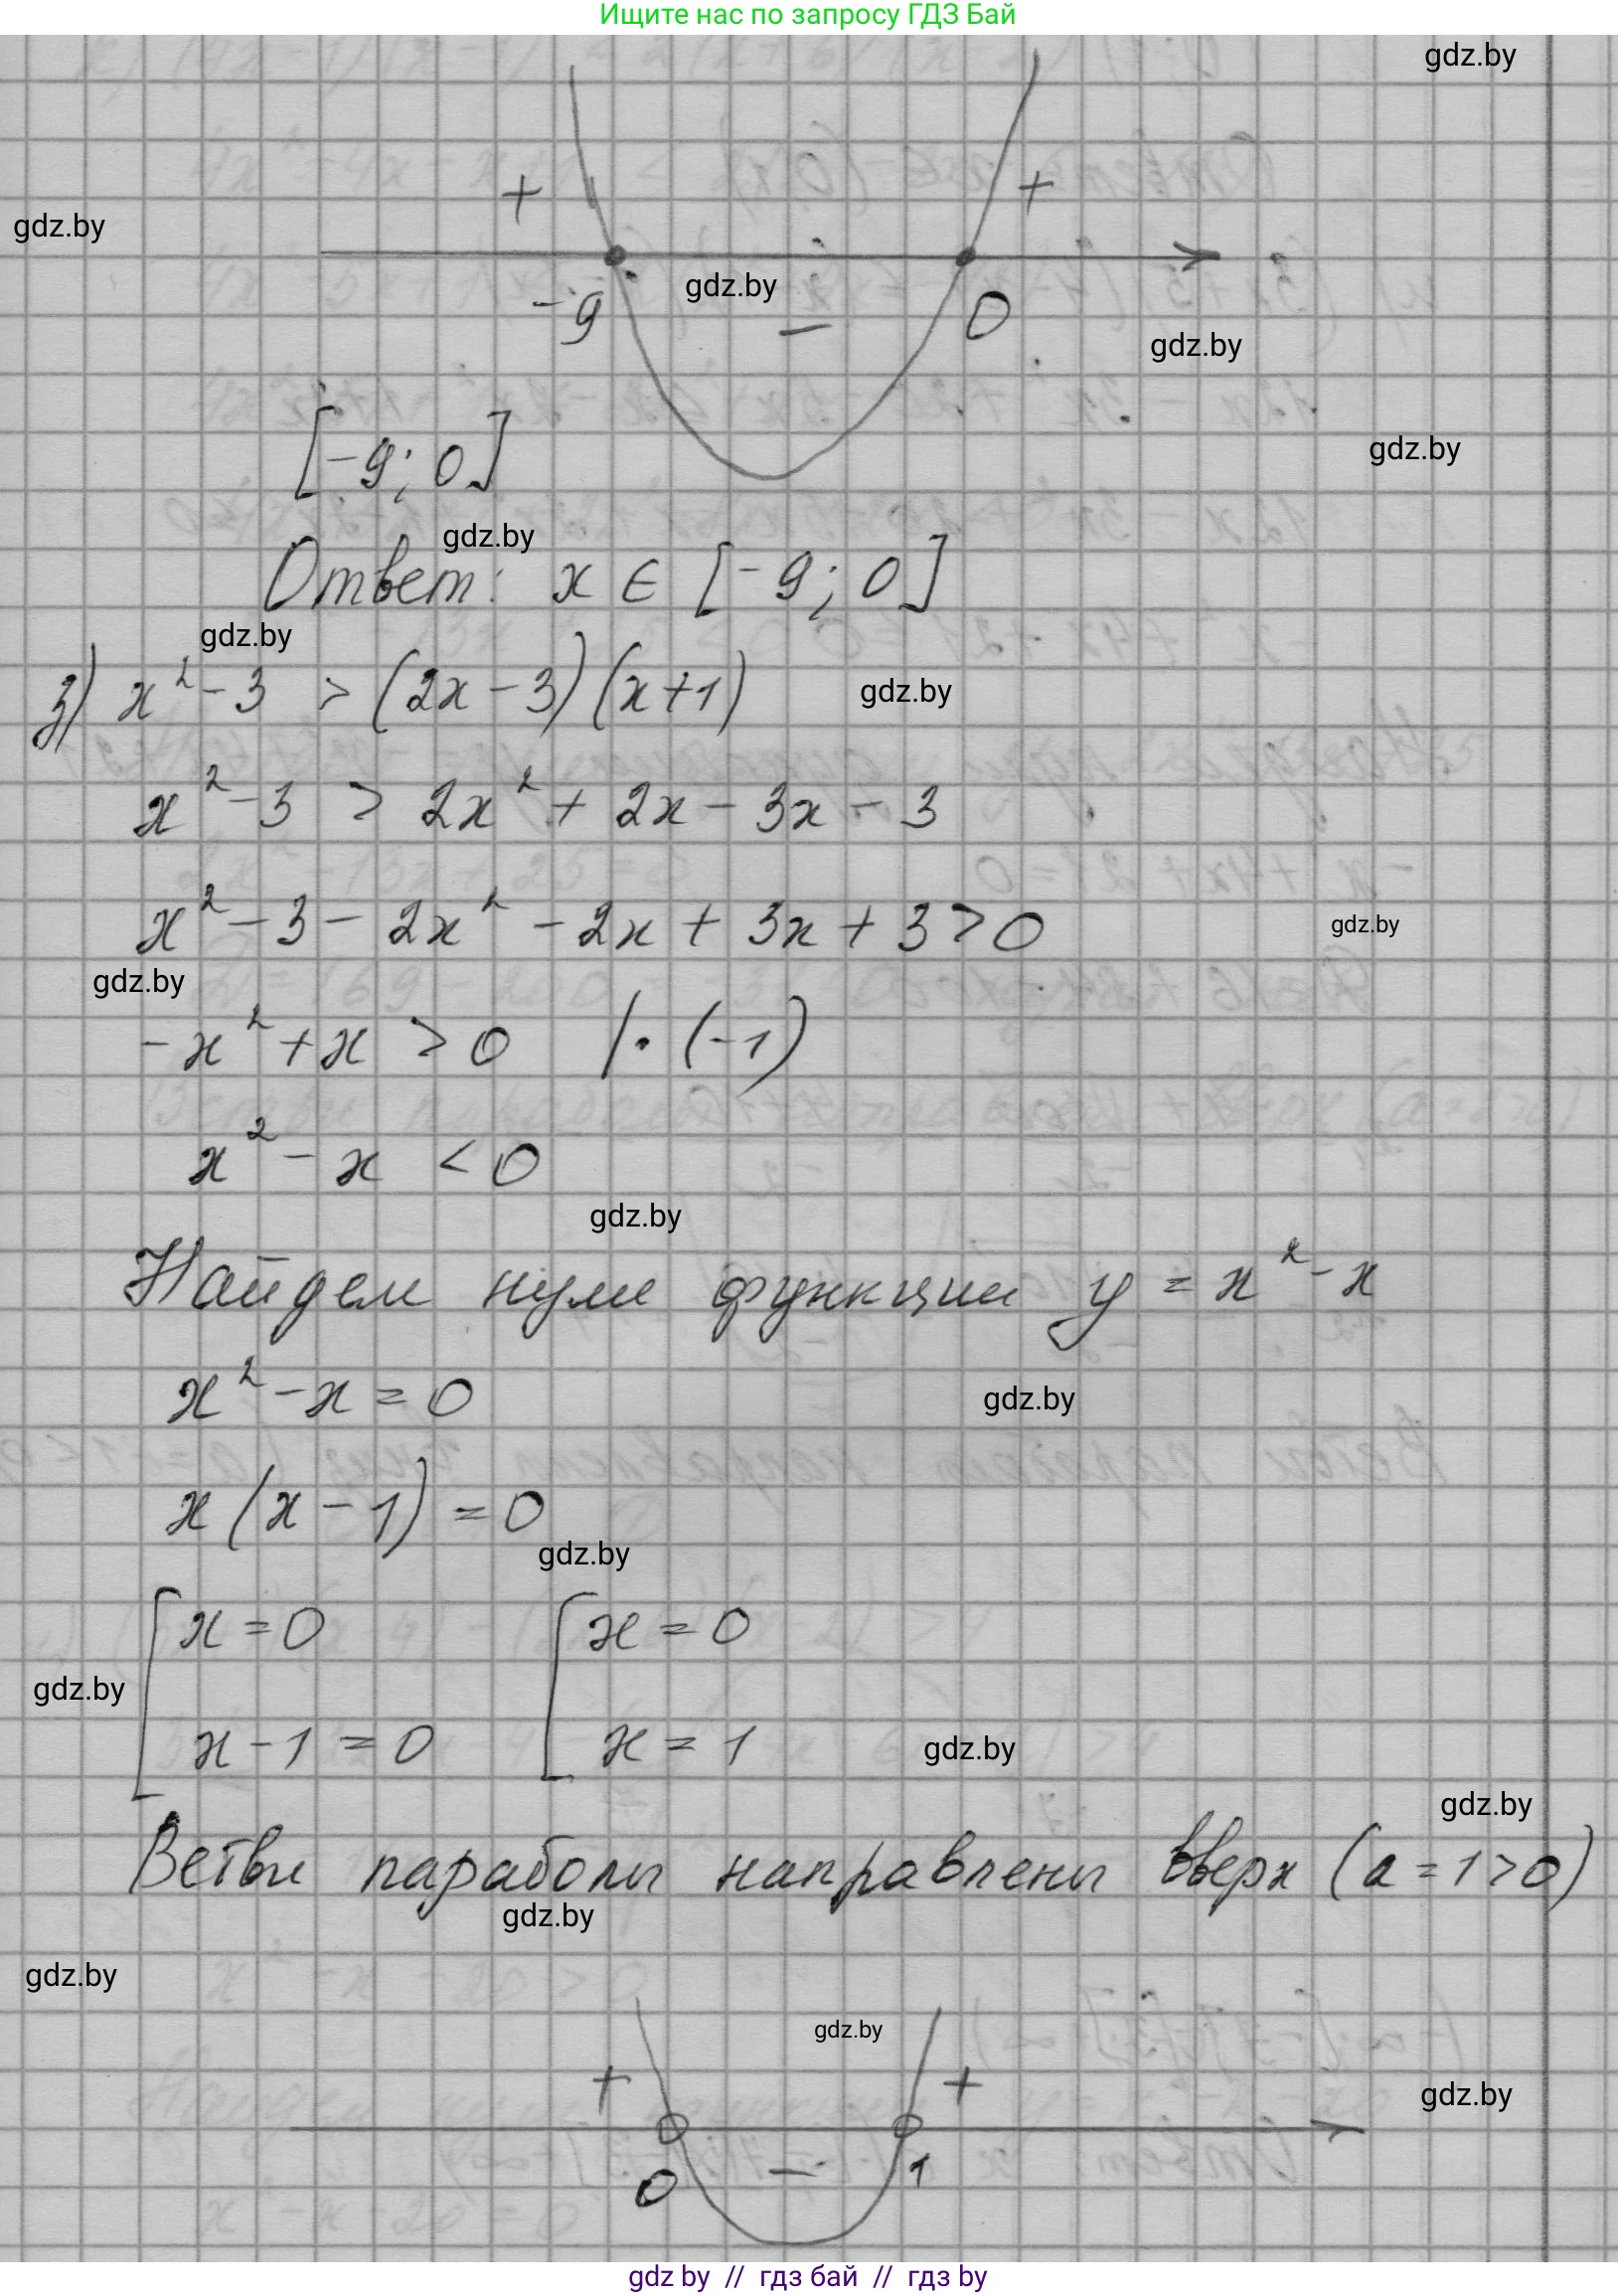 Ищите нас по запросу ГДЗ Бай
gdz.by
+ +
gdz.by
-9 gdz.by − 0
gdz.by
[-9; 0]
gdz.by
gdz.by
Ответ: x ∈ [-9; 0]
gdz.by
з) x² - 3 > (2x - 3)(x + 1)
gdz.by
x² - 3 > 2x² + 2x - 3x - 3
x² - 3 - 2x² - 2x + 3x + 3 > 0
gdz.by
gdz.by
-x² + x > 0 | · (-1)
x² - x < 0
gdz.by
Найдем нули функции y = x² - x
x² - x = 0
gdz.by
x(x - 1) = 0
gdz.by
[x = 0 [x = 0
gdz.by
x - 1 = 0 x = 1
gdz.by
gdz.by
Ветви параболы направлены вверх (a = 1 > 0)
gdz.by
gdz.by
gdz.by
+ +
gdz.by
0 − 1
gdz by // гдз бай // гдз by